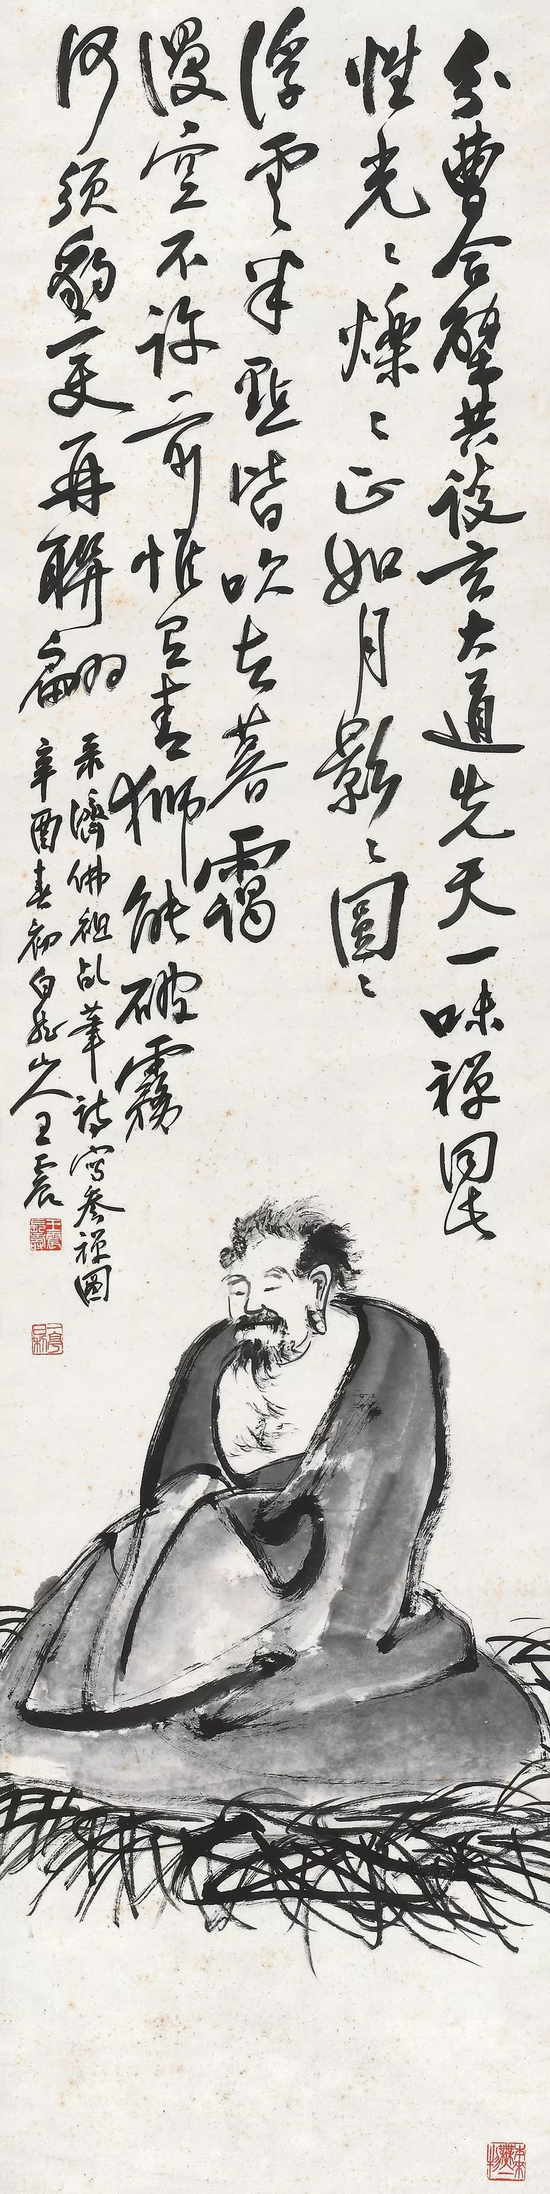 分曹合擘共談玄大道先天一味禪同此
性光々爍々正如月影々圓々
浮雲半點皆吹去暮靄
漫空不許前惟有青獅能破霧
何須豹變再聯翩
录濟佛祖乩筆詩寫參禪圖
辛酉春初白龍山人王震